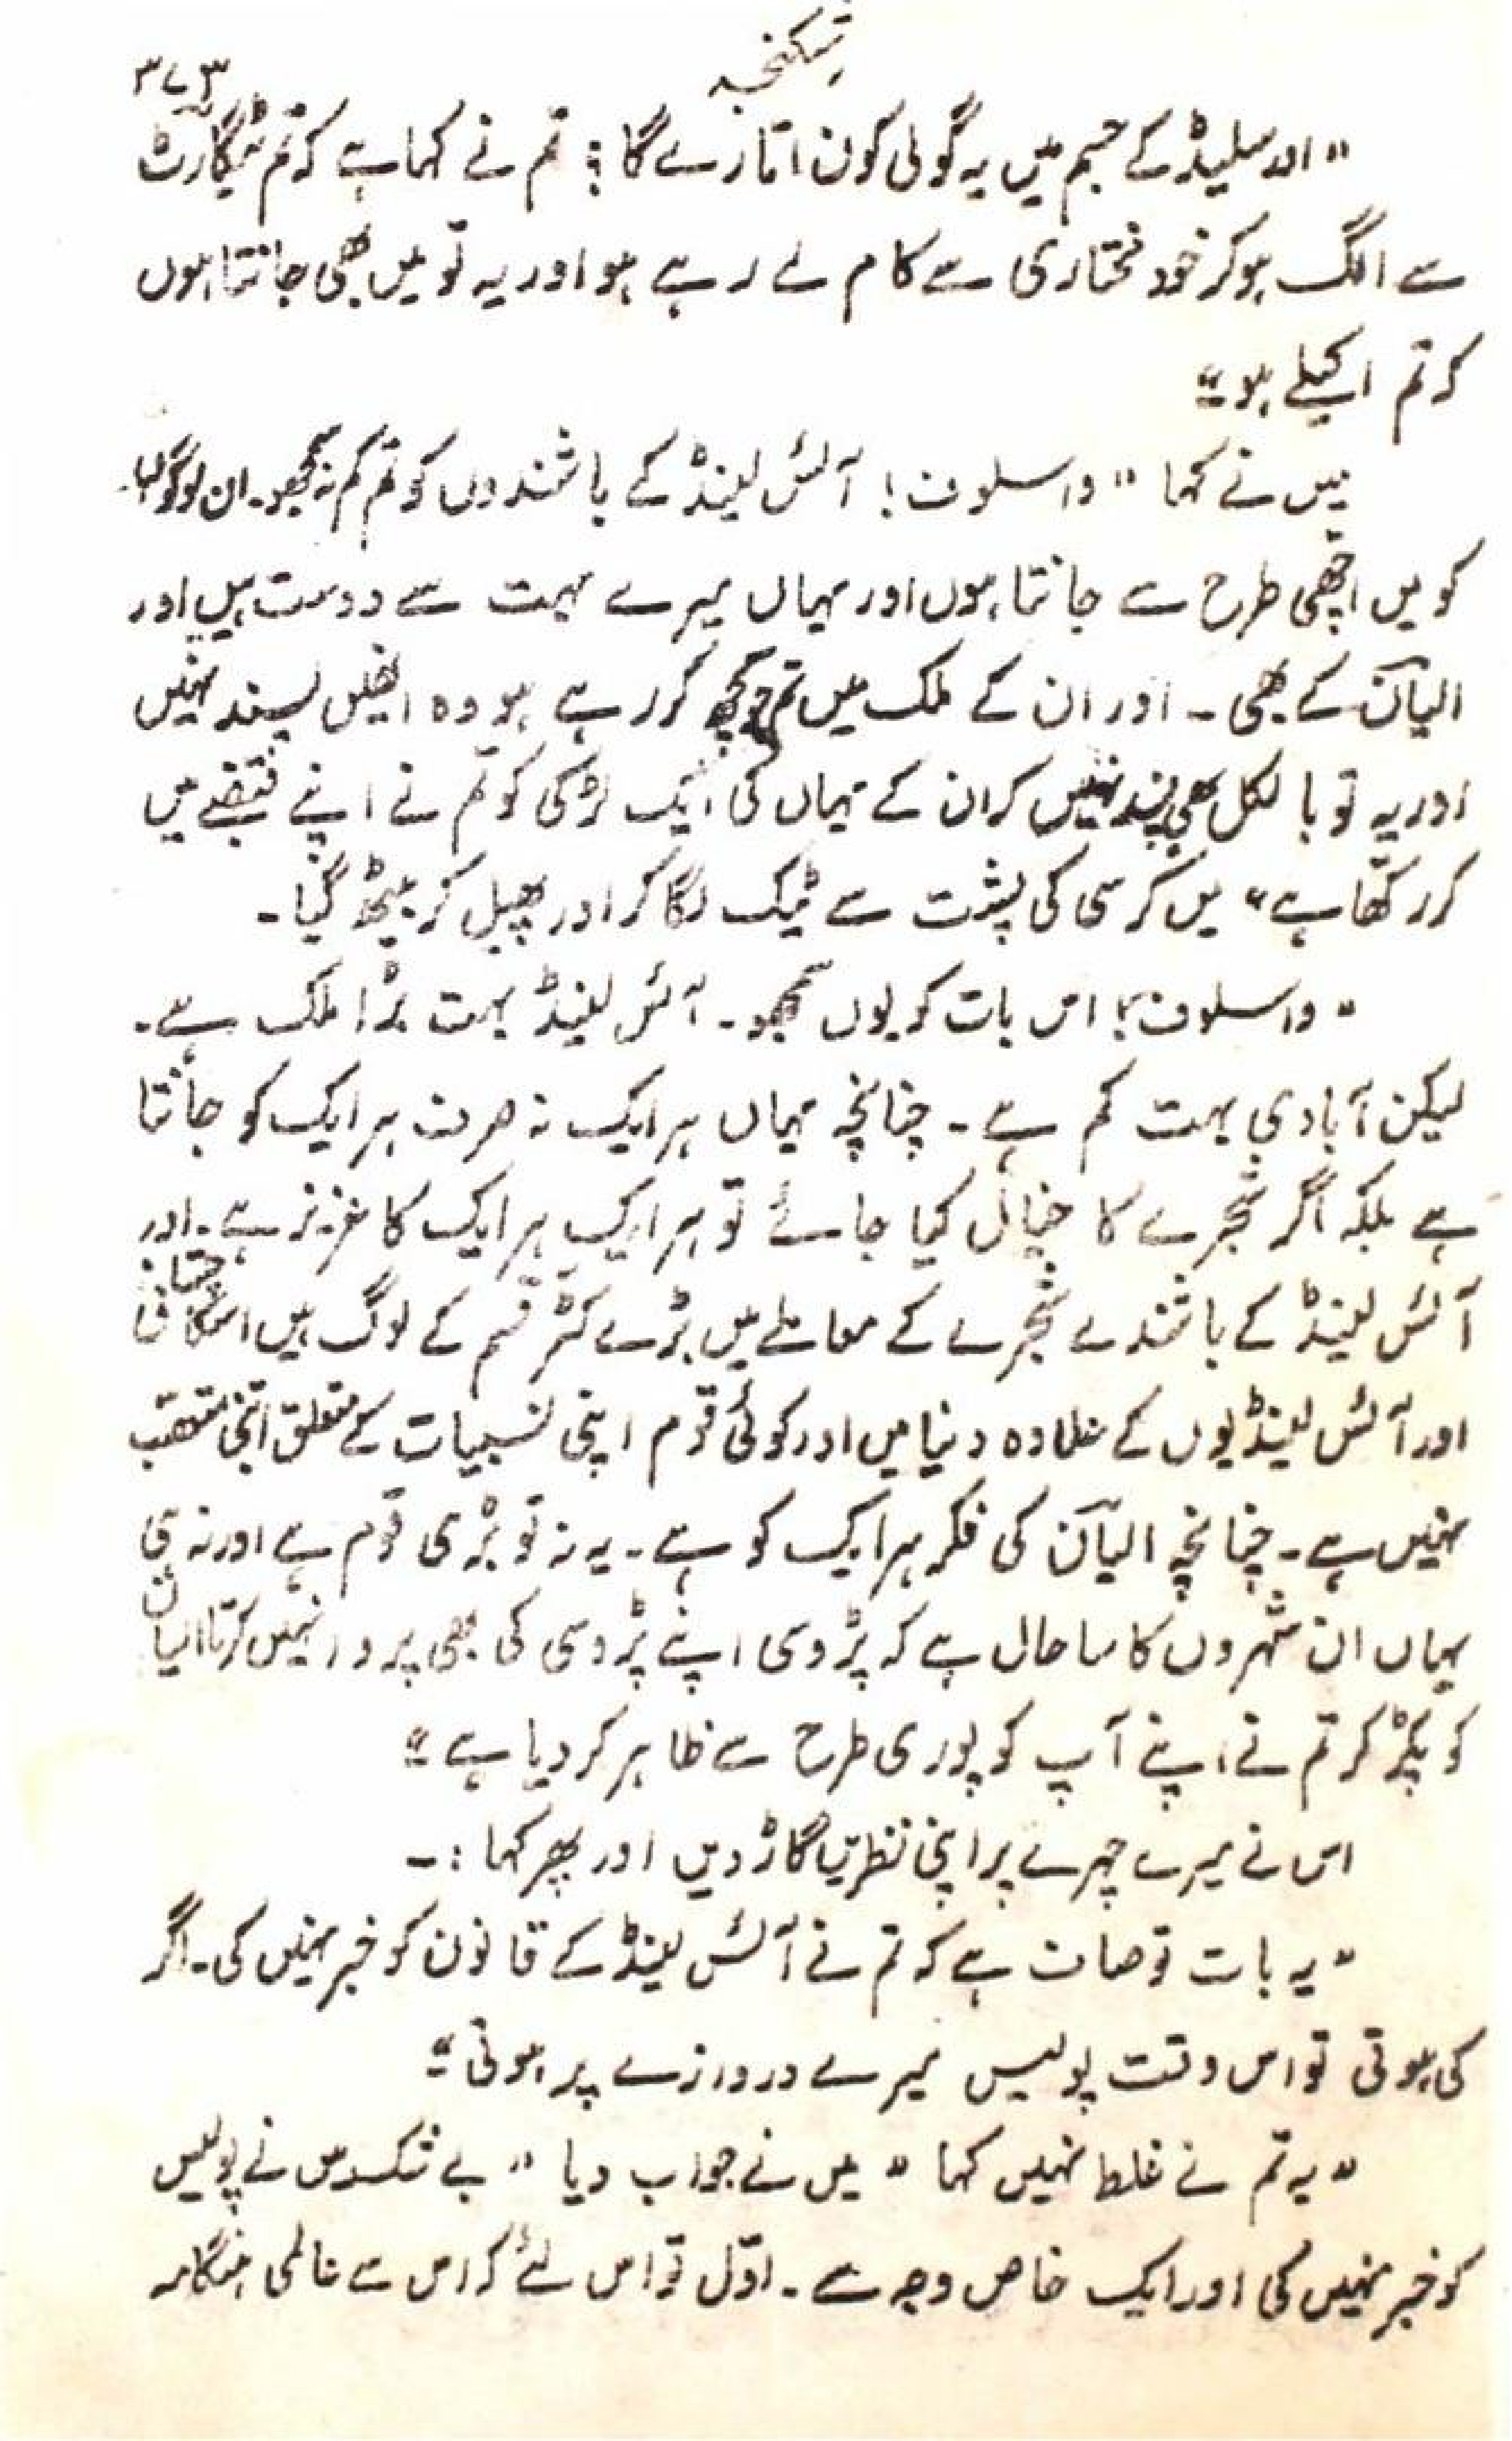 شکنجہ
۳۷۳
"اور سلیڈ کے جسم میں یہ گولی کون اتارے گا؟ تم نے کہا ہے کہ تم ٹیگارٹ
سے الگ ہو کر خود مختاری سے کام لے رہے ہو اور یہ تو میں بھی جانتا ہوں
کہ تم اکیلے ہو"۔
میں نے کہا "واسلوف! آئس لینڈ کے باشندوں کو تم کم نہ سمجھو۔ ان لوگوں
کو میں اچھی طرح سے جانتا ہوں اور یہاں میرے بہت سے دوست ہیں اور
الیان کے بھی۔ اور ان کے ملک میں تم جو کچھ کر رہے ہو وہ انھیں پسند نہیں
اور یہ تو بالکل بھی پسند نہیں کہ ان کے یہاں کی ایک لڑکی کو تم نے اپنے قبضے میں
کر رکھا ہے" میں کرسی کی پشت سے ٹیک لگا کر اور پھیل کر بیٹھ گیا۔
"واسلوف! اس بات کو یوں سمجھو۔ آئس لینڈ بہت بڑا ملک ہے۔
لیکن آبادی بہت کم ہے۔ چنانچہ یہاں ہر ایک نہ صرف ہر ایک کو جانتا
ہے بلکہ اگر شجرے کا خیال کیا جائے تو ہر ایک ہر ایک کا عزیز ہے۔ اور
آئس لینڈ کے باشندے شجرے کے معاملے میں بڑے کٹر قسم کے لوگ ہیں
اور آئس لینڈیوں کے علاوہ دنیا میں اور کوئی قوم اپنی نسبیات کے متعلق اتنی متعصب
نہیں ہے۔ چنانچہ الیان کی فکر ہر ایک کو ہے۔ یہ نہ تو بڑی قوم ہے اور نہ ہی
یہاں ان شہروں کا سا حال ہے کہ پڑوسی اپنے پڑوسی کی بھی پروا نہیں کرتا الیان
کو پکڑ کر تم نے اپنے آپ کو پوری طرح سے ظاہر کر دیا ہے"۔
اس نے میرے چہرے پر اپنی نظریں گاڑ دیں اور پھر کہا :۔
"یہ بات تو صاف ہے کہ تم نے آئس لینڈ کے قانون کو خبر نہیں کی۔ اگر
کی ہوتی تو اس وقت پولیس میرے دروازے پر ہوتی"۔
"یہ تم نے غلط نہیں کہا" میں نے جواب دیا "بے شک میں نے پولیس
کو خبر نہیں کی اور ایک خاص وجہ سے۔ اوّل تو اس لئے کہ اس سے عالمی ہنگامہ